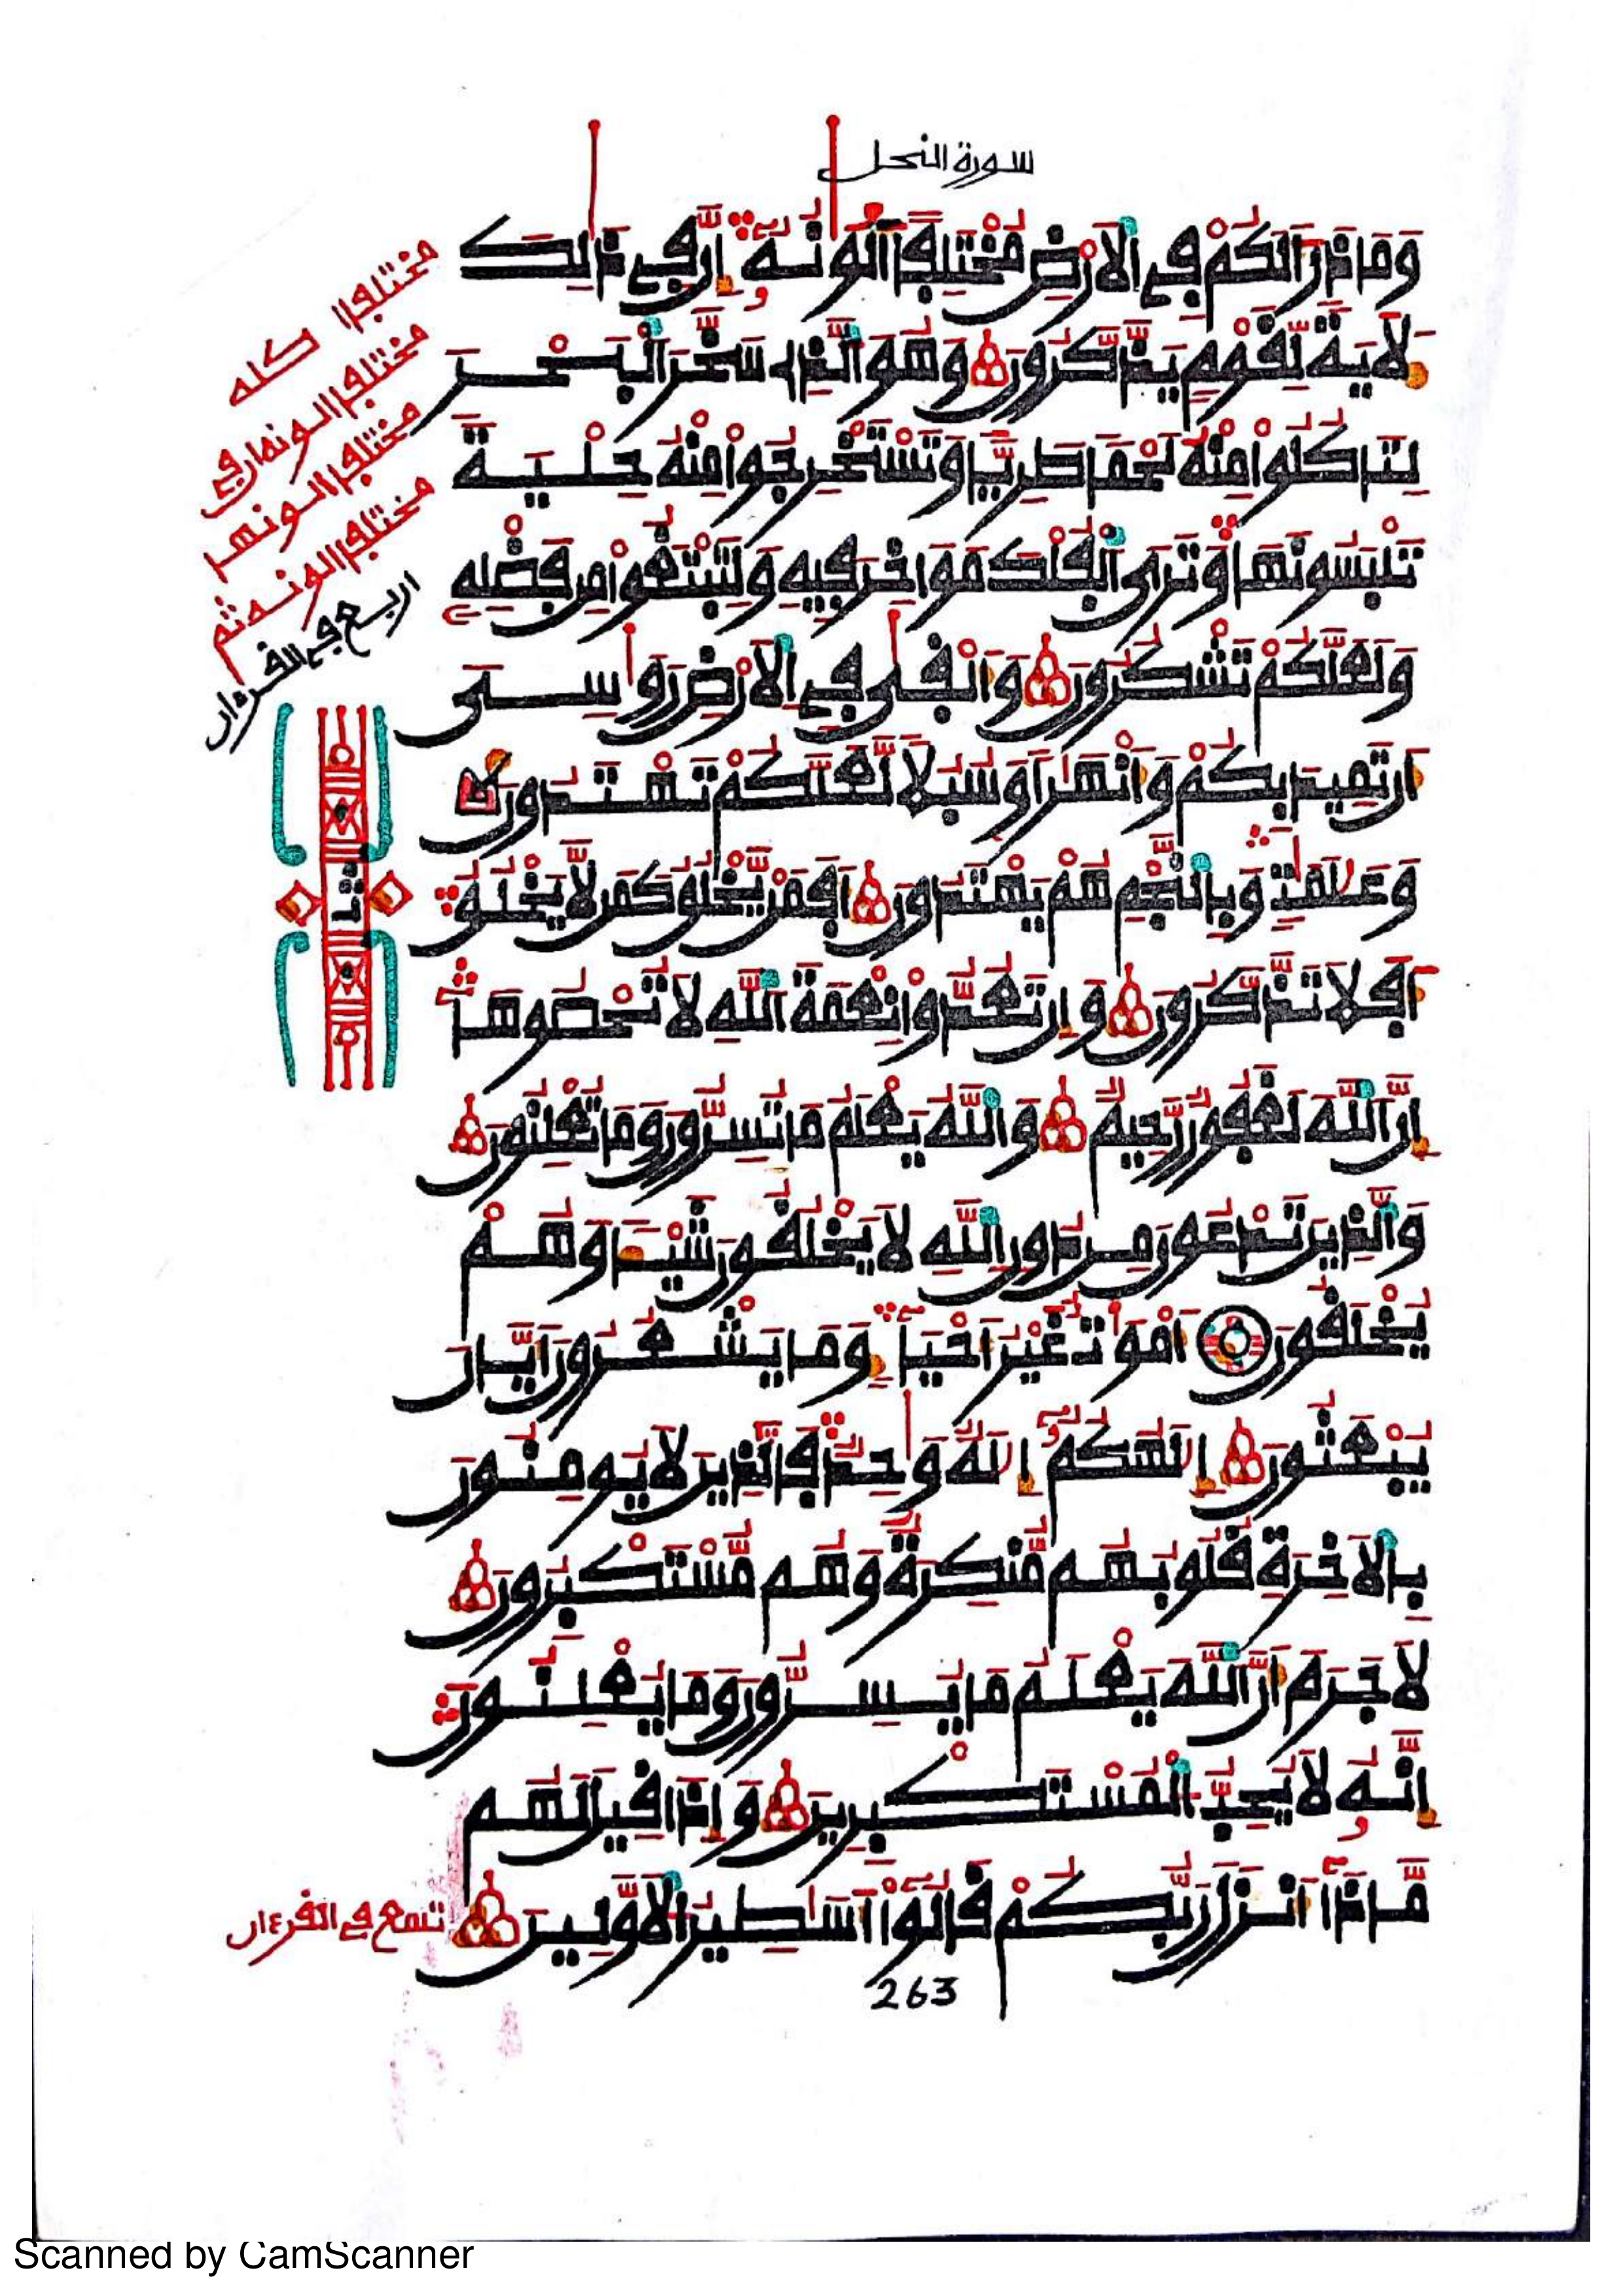 سورة النحل
وَمَا ذَرَأَ لَكُمْ فِے الْأَرْضِ مُخْتَلِفًا أَلْوَٰنُهُۥٓ إِنَّ فِے ذَٰلِكَ
لَأٓيَةً لِّقَوْمٍ يَذَّكَّرُونَ وَهُوَ الَّذِے سَخَّرَ الْبَحْرَ
لِتَأْكُلُوا مِنْهُ لَحْمًا طَرِيًّا وَتَسْتَخْرِجُوا مِنْهُ حِلْيَةً
تَلْبَسُونَهَا وَتَرَى الْفُلْكَ مَوَاخِرَ فِيهِ وَلِتَبْتَغُوا مِن فَضْلِهِ
وَلَعَلَّكُمْ تَشْكُرُونَ وَأَلْقَىٰ فِے الْأَرْضِ رَوَٰسِىَ
أَن تَمِيدَ بِكُمْ وَأَنْهَٰرًا وَسُبُلًا لَّعَلَّكُمْ تَهْتَدُونَ
وَعَلَٰمَٰتٍ وَبِالنَّجْمِ هُمْ يَهْتَدُونَ أَفَمَنْ يَّخْلُقُ كَمَن لَّا يَخْلُقُ
أَفَلَا تَذَّكَّرُونَ وَإِن تَعُدُّوا نِعْمَةَ اللَّهِ لَا تُحْصُوهَا
إِنَّ اللَّهَ لَغَفُورٌ رَّحِيمٌ وَاللَّهُ يَعْلَمُ مَا تُسِرُّونَ وَمَا تُعْلِنُونَ
وَالَّذِينَ تَدْعُونَ مِن دُونِ اللَّهِ لَا يَخْلُقُونَ شَيْـًٔا وَهُمْ
يُخْلَقُونَ أَمْوَٰتٌ غَيْرُ أَحْيَآءٍ وَمَا يَشْعُرُونَ أَيَّانَ
يُبْعَثُونَ إِلَٰهُكُمُۥٓ إِلَٰهٌ وَٰحِدٌ فَالَّذِينَ لَا يُومِنُونَ
بِالْأٓخِرَةِ قُلُوبُهُم مُّنكِرَةٌ وَهُم مُّسْتَكْبِرُونَ
لَا جَرَمَ أَنَّ اللَّهَ يَعْلَمُ مَا يُسِرُّونَ وَمَا يُعْلِنُونَ
إِنَّهُۥ لَا يُحِبُّ الْمُسْتَكْبِرِينَ وَإِذَا قِيلَ لَهُم
مَّاذَآ أَنزَلَ رَبُّكُمْ قَالُوٓا أَسَٰطِيرُ الْأَوَّلِينَ
263
مختلفا كله
مختلفا الونها وفى
مختلفا الونها
مختلفا الونه ثم
اربع فى القرءان
ثمن
تسع فى القرءان
Scanned by CamScanner